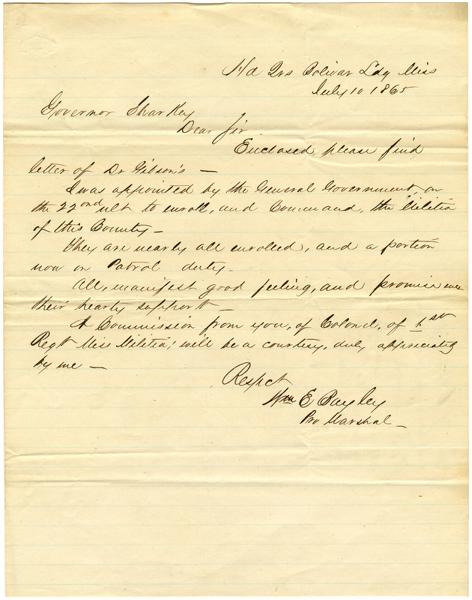 Hd Qrs Bolivar Ldg Miss
July 10 1865
Governor Sharkey
Dear Sir
Enclosed please find
letter of Dr Gibson's —
I was appointed by the General Government, on
the 22nd ult to enroll, and Command, the Militia
of this County —
They are nearly all enrolled, and a portion
now on Patrol duty.
All, manifest good feeling, and promise me
their hearty support —
A Commission from you, of Colonel, of 1st
Regt Miss Militia, will be a courtesy, duly appreciated
by me —
Respct
Wm E Bayley
Pro Marshal —